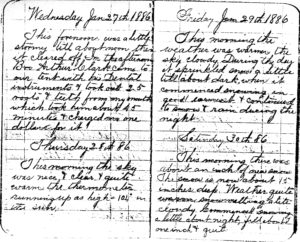 Wednesday Jan 27th 1886
This forenoon was a little
stormy till about noon then
it cleared off. In the afternoon
Wm Arthur Wright came to
our tent with his Dental
instruments & took out 25
roots & teeth from my mouth
which took him about
minutes & charged me one
dollar for it!
Thursday 28th 86
This morning the sky
was nice & clear & quite
warm the thermometer
running up as high as 104° in
the sun.
Friday Jan 29th 1886
This morning the
weather was warmer the
sky cloudy. During the day
it sprinkled snow a little
till about dark, when it
commenced snowing in
good earnest & continued
to snow & rain during the
night.
Saturday 30th 86
This morning there was
about an inch of new snow
The snow is now about 15
inches deep. Weather quite
warm snow melting a little
cloudy. Commenced snowing
a little about night, fell about
one inch & quit